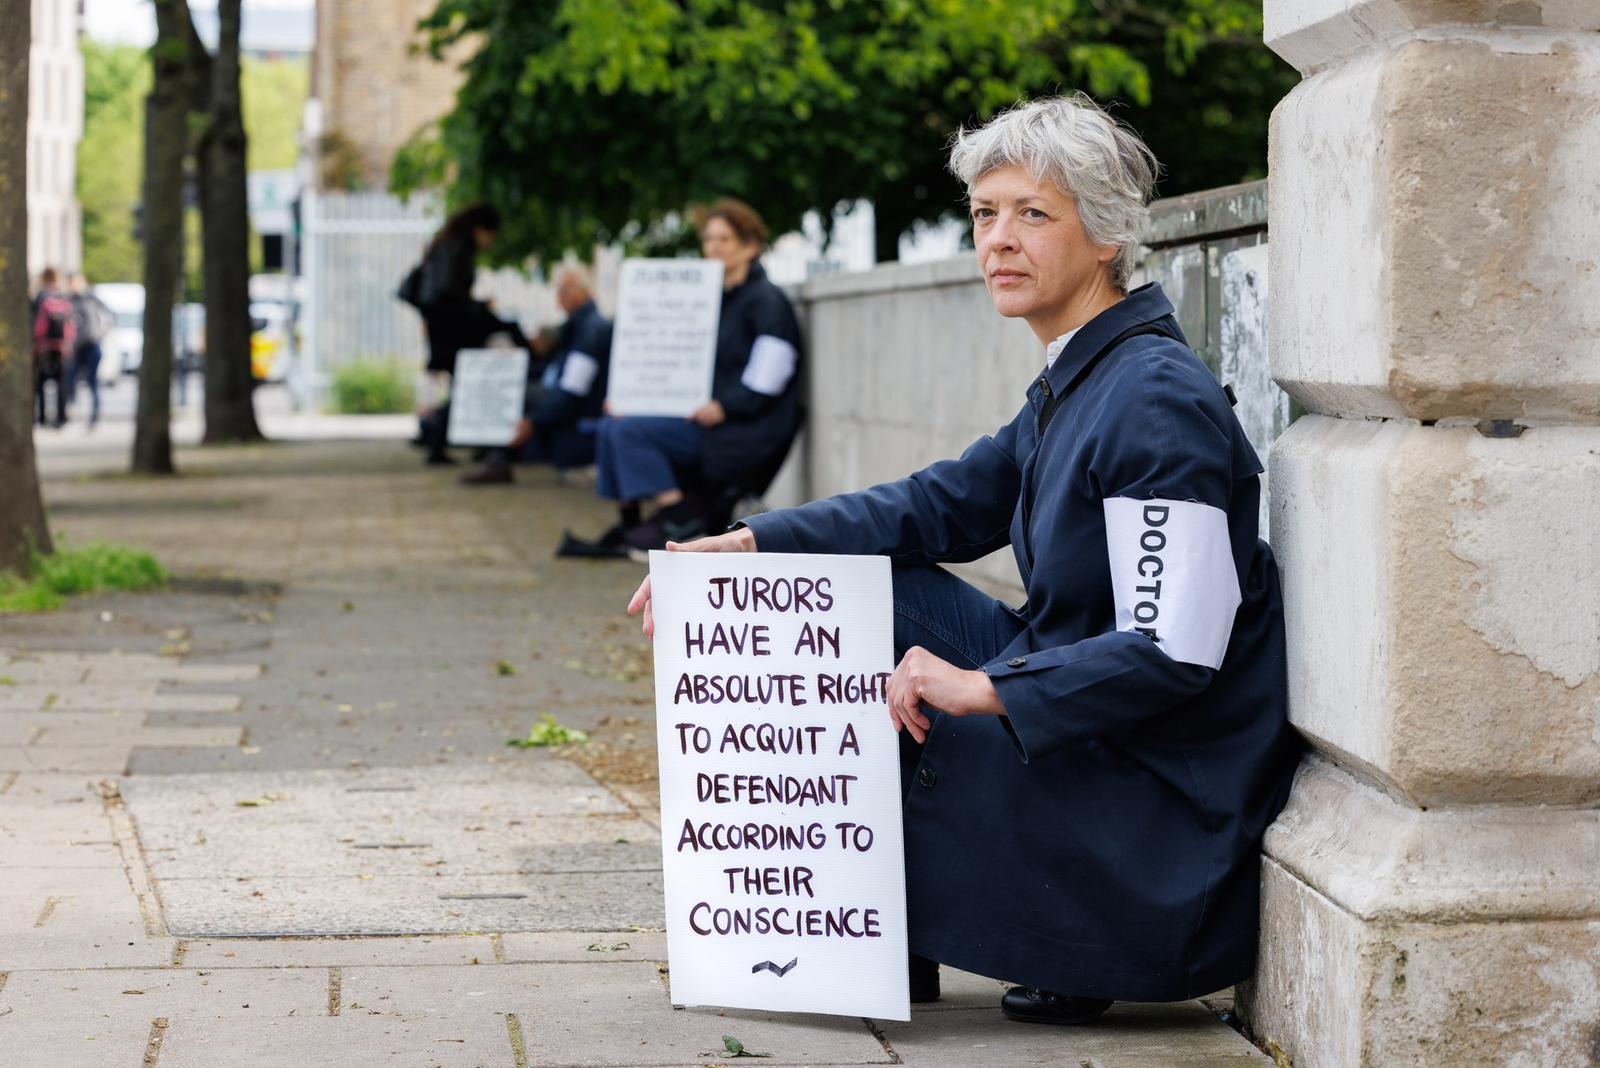 JURORS
HAVE AN
ABSOLUTE RIGHT
TO ACQUIT A
DEFENDANT
ACCORDING TO
THEIR
CONSCIENCE
DOCTOR
JURORS